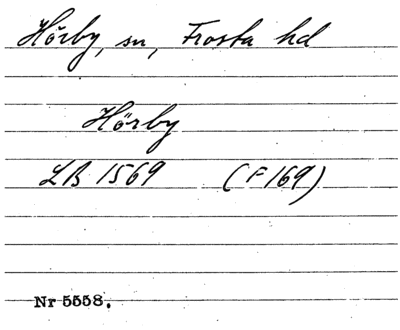 Hörby, sn, Frosta hd
Hörby
LB 1569 (F 169)
Nr 5558.